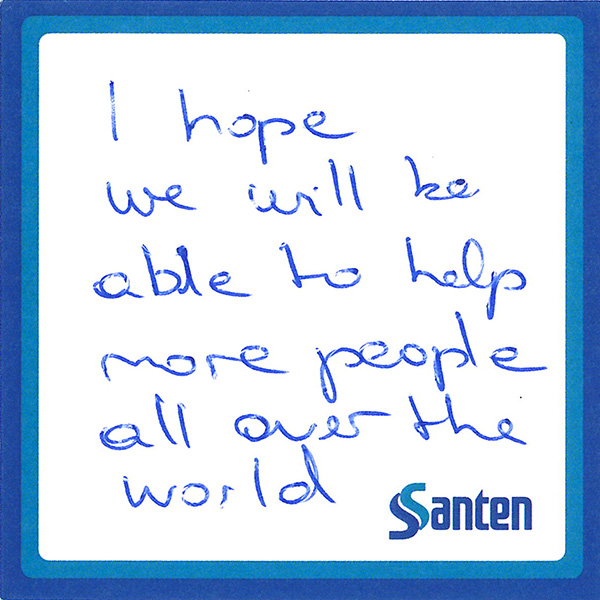 I hope
we will be
able to help
more people
all over the
world
Santen